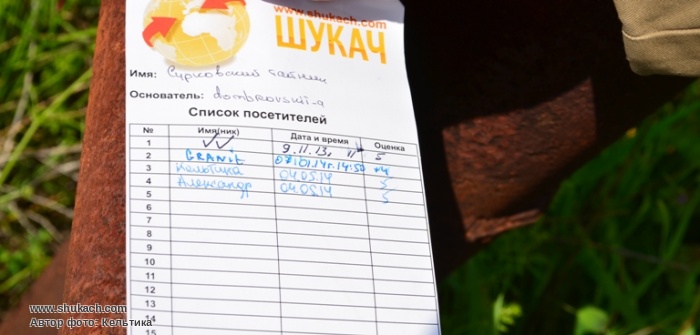 www.shukach.com
ШУКАЧ
Имя: Сурковский тайник
Основатель: dombrovskii-a
Список посетителей
№ Имя(ник) Дата и время Оценка
1 9.11.13, 11 5
2 GRANIt 07.01.14г. 14:50
3 Кельтика 04.05.14 5
4 Александр 04.05.14 5
5
6
7
8
9
10
11
12
13
14
15
www.shukach.com
Автор фото: Кельтика